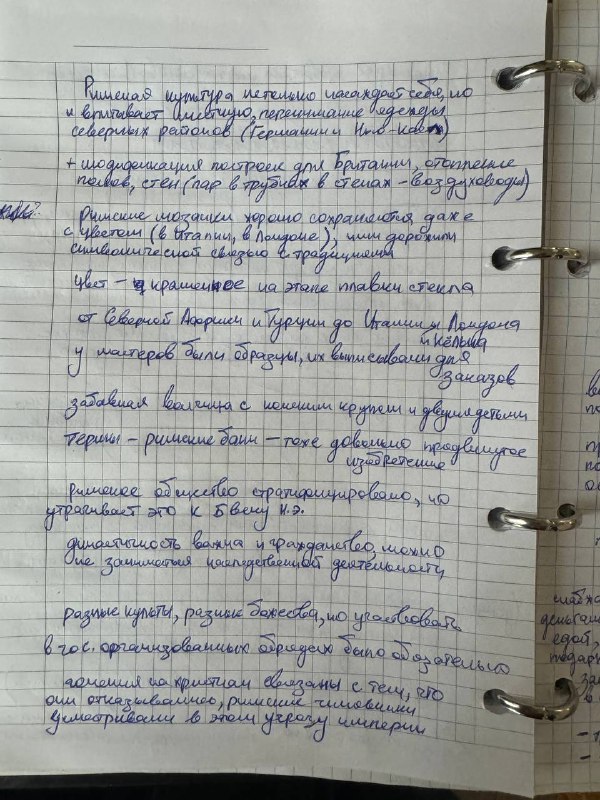 Римская культура не только насаждает себя, но
и впитывает местную, перенимание одежды
северных районов (Германии и
+ модификация построек для Британии, отопление
полов, стен (пар в трубках в стенах - воздуховоды)
Римские мозаики хорошо сохраняются даже
с цветом (в Италии, в Лондоне), ими дорожили
символической связью с традициями
цвет - крашеное на этапе плавки стекла
от Северной Африки и Турции до Италии и Лондона
и Кёльна
у мастеров были образцы, их выписывали для
заказов
забавная волчица с конским крупом и двумя детьми
термы - римские бани - тоже довольно продвинутое
изобретение
римское общество стратифицировано, но
утрачивает это к веку н.э.
династичность важна и гражданство, можно
не заниматься наследственной деятельностью
разные культы, разные божества, но участвовать
в гос. организованных обрядах было обязательно
гонения на христиан связаны с тем, что
они отказывались, римские чиновники
усматривали в этом угрозу империи
едой,